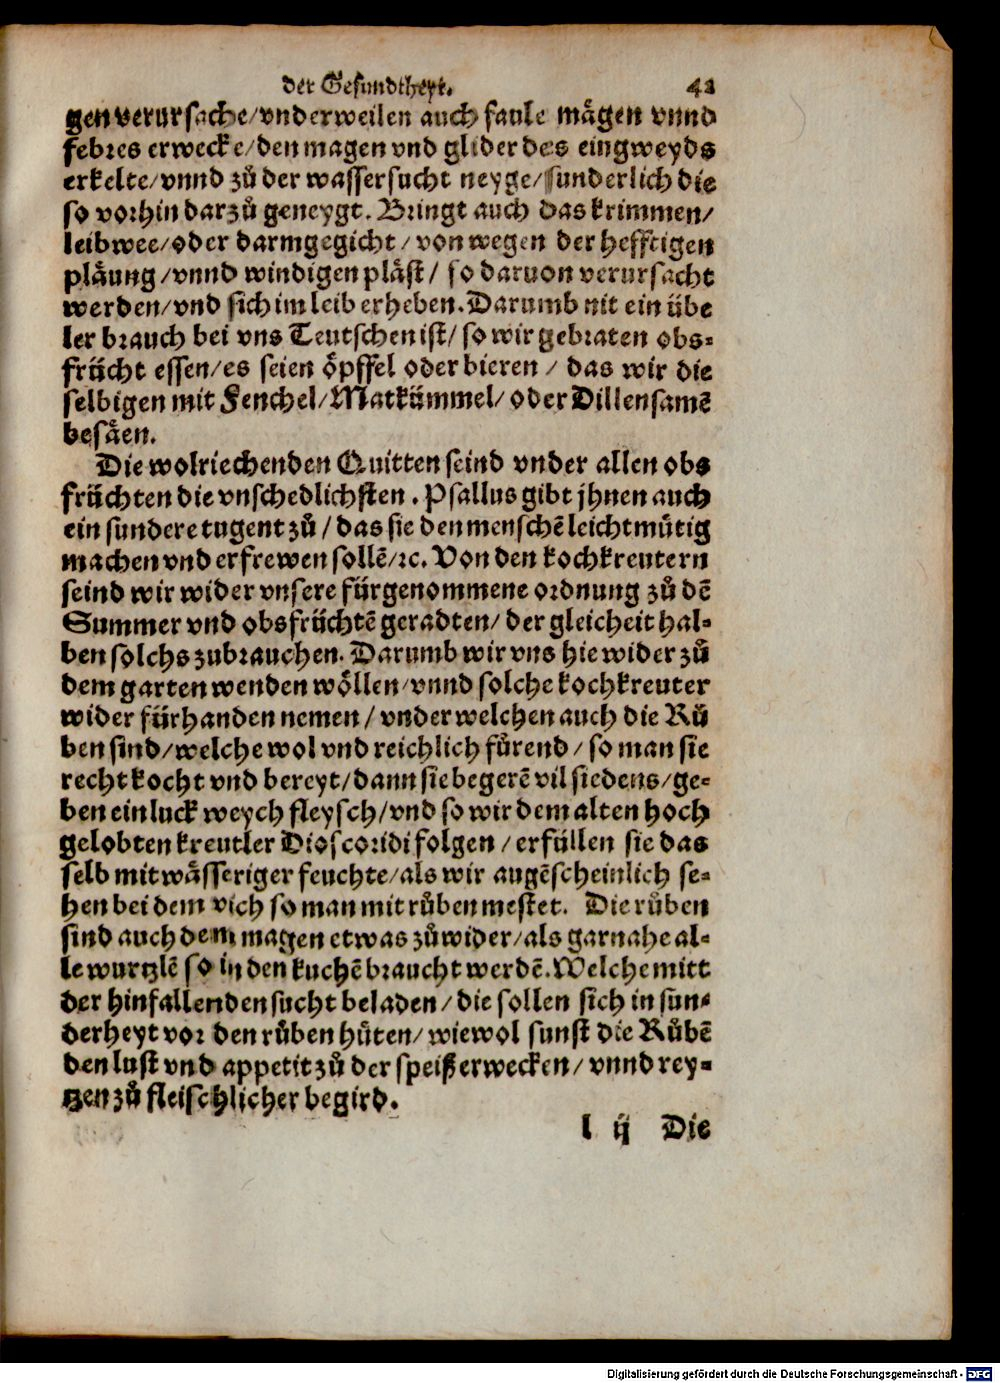 der Gesundtheyt. 42
gen verursache/vnderweilen auch faule mägen vnnd
febres erwecke/den magen vnd glider des eingweyds
erkelte/vnnd zů der wassersucht neyge/sunderlich die
so vorhin darzů geneygt. Bringt auch das krimmen/
leibwee/oder darmgegicht/von wegen der hefftigen
pläung/vnnd windigen pläst/ so daruon verursacht
werden/vnd sich im leib erheben. Darumb nit ein übe
ler brauch bei vns Teutschen ist/ so wir gebraten obs-
frücht essen/es seien öpffel oder bieren / das wir die
selbigen mit Fenchel/Matkümmel/oder Dillensamē
besäen.
Die wolriechenden Quitten seind vnder allen obs
früchten die vnschedlichsten. Psallus gibt jhnen auch
ein sundere tugent zů / das sie den menschē leichtmütig
machen vnd erfrewen sollē/ꝛc. Von den kochkreutern
seind wir wider vnsere fürgenommene ordnung zů dē
Summer vnd obsfrüchtē geradten/ der gleicheit hal-
ben solchs zubrauchen. Darumb wir vns hie wider zů
dem garten wenden wöllen/vnnd solche kochkreuter
wider fürhanden nemen / vnder welchen auch die Rů
ben sind/welche wol vnd reichlich fůrend/ so man sie
recht kocht vnd bereyt/dann sie begerē vil siedens/ge-
ben ein luck weych fleysch/vnd so wir dem alten hoch
gelobten kreutler Dioscoridi folgen / erfüllen sie das
selb mit wässeriger feuchte/als wir augēscheinlich se-
hen bei dem vich so man mit růben mestet. Die růben
sind auch dem magen etwas zůwider/als garnahe al-
le wurtzlē so in den kuchē braucht werdē. Welche mitt
der hinfallenden sucht beladen/die sollen sich in sun-
derheyt vor den růben hüten/ wiewol sunst die Růbē
den lust vnd appetit zů der speiß erwecken/ vnnd rey-
tzen zů fleischlicher begird.
l ij Die
Digitalisierung gefördert durch die Deutsche Forschungsgemeinschaft - DFG